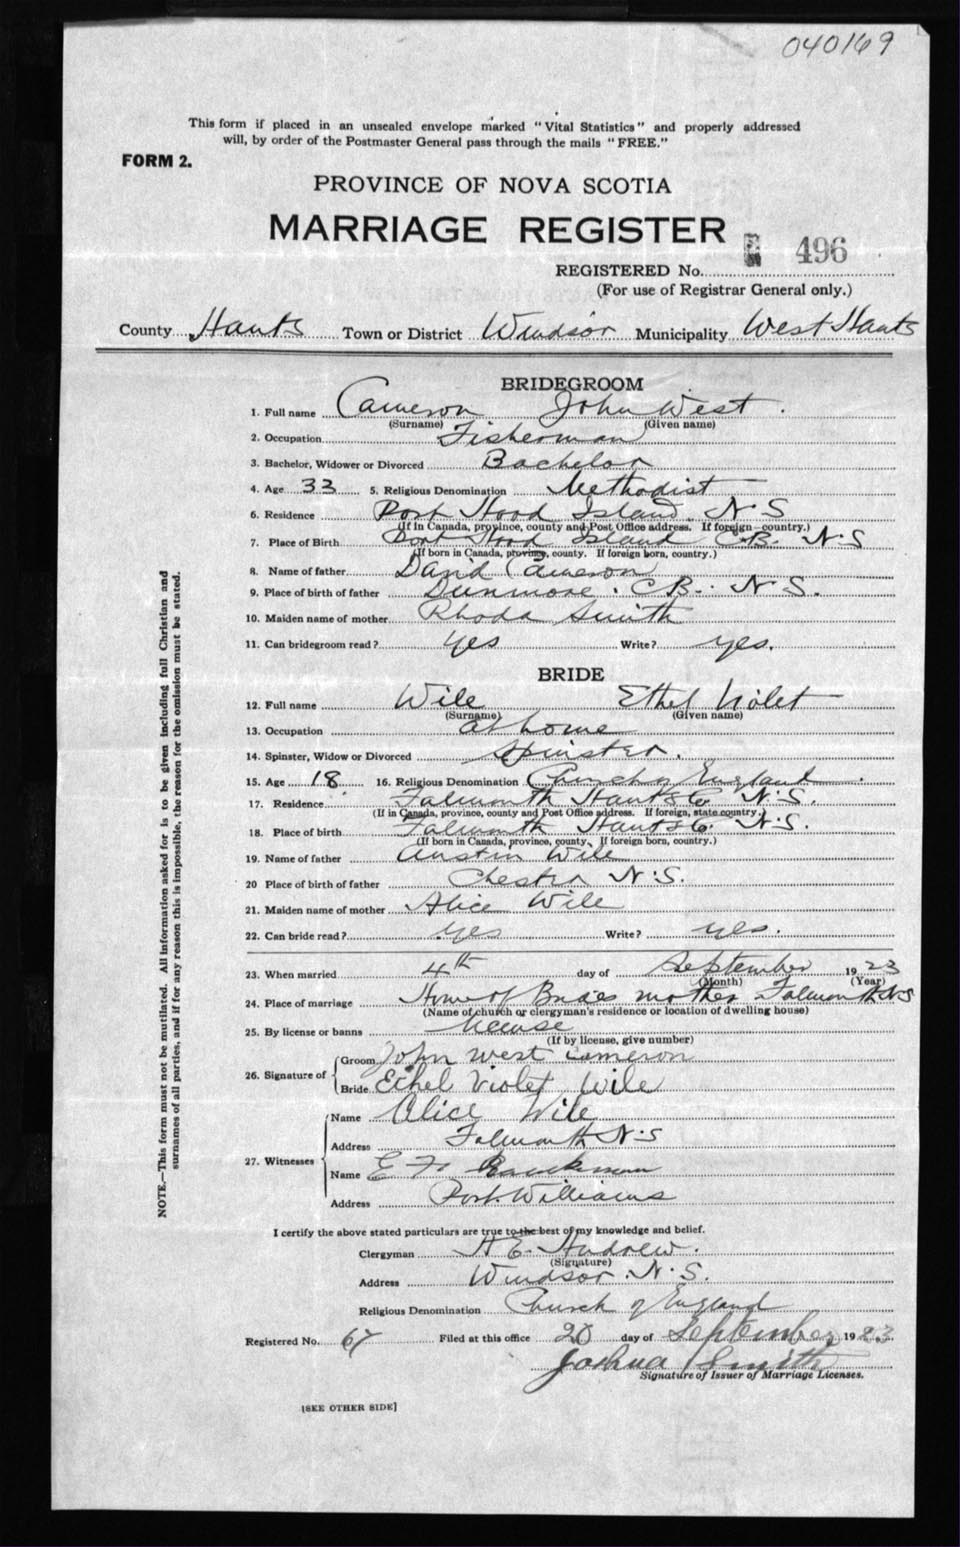 040169
This form if placed in an unsealed envelope marked "Vital Statistics" and properly addressed
will, by order of the Postmaster General pass through the mails "FREE."
FORM 2.
PROVINCE OF NOVA SCOTIA
MARRIAGE REGISTER
496
REGISTERED No.
(For use of Registrar General only.)
County Hants Town or District Windsor Municipality West Hants
BRIDEGROOM
1. Full name Cameron John West.
(Surname) (Given name)
2. Occupation Fisherman
3. Bachelor, Widower or Divorced Bachelor
4. Age 33 5. Religious Denomination Methodist
6. Residence Port Hood Island N S
(If in Canada, province, county and Post Office address. If foreign—country.)
7. Place of Birth Port Hood Island C.B. N.S
(If born in Canada, province, county. If foreign born, country.)
8. Name of father David Cameron
9. Place of birth of father Dunmore. C B. N S.
10. Maiden name of mother Rhoda Smith
11. Can bridegroom read? yes Write? yes.
BRIDE
12. Full name Wile Ethel Violet
(Surname) (Given name)
13. Occupation at home
14. Spinster, Widow or Divorced Spinster.
15. Age 18 16. Religious Denomination Church of England.
17. Residence Falmouth Hants Co N.S.
(If in Canada, province, county and Post Office address. If foreign, state country.)
18. Place of birth Falmouth Hants Co. N.S.
(If born in Canada, province, county. If foreign born, country.)
19. Name of father Austin Wile
20 Place of birth of father Chester N.S.
21. Maiden name of mother Alice Wile
22. Can bride read? yes Write? yes.
23. When married 4th day of September 1923
(Month) (Year)
24. Place of marriage Home of Brides mother Falmouth N S
(Name of church or clergyman's residence or location of dwelling house)
25. By license or banns license
(If by license, give number)
26. Signature of Groom John West Cameron
Bride Ethel Violet Wile
27. Witnesses Name Alice Wile
Address Falmouth N.S
Name E
Address Port Williams
I certify the above stated particulars are true to the best of my knowledge and belief.
Clergyman A E. Andrew.
(Signature)
Address Windsor. N. S.
Religious Denomination Church of England
Registered No. 67 Filed at this office 20 day of September 1923.
Joshua Smith
Signature of Issuer of Marriage Licenses.
[SEE OTHER SIDE]
NOTE.—This form must not be mutilated. All information asked for is to be given including full Christian and
surnames of all parties, and if for any reason this is impossible, the reason for the omission must be stated.